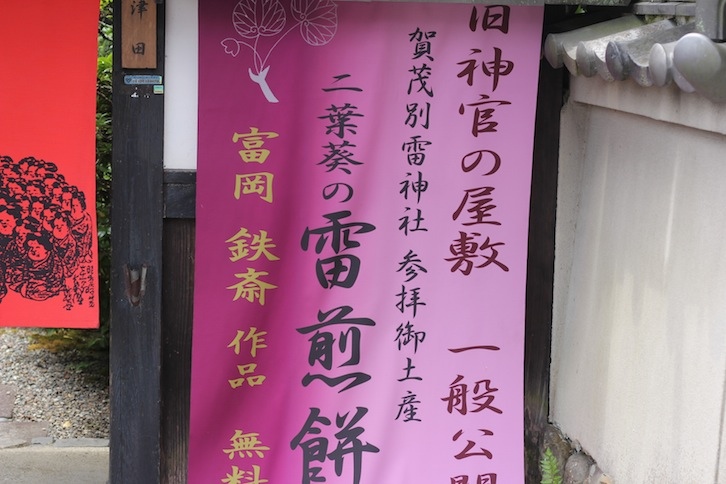 旧神官の屋敷 一般公開
賀茂別雷神社 参拝御土産
二葉葵の雷煎餅
富岡 鉄斎 作品 無料
津田